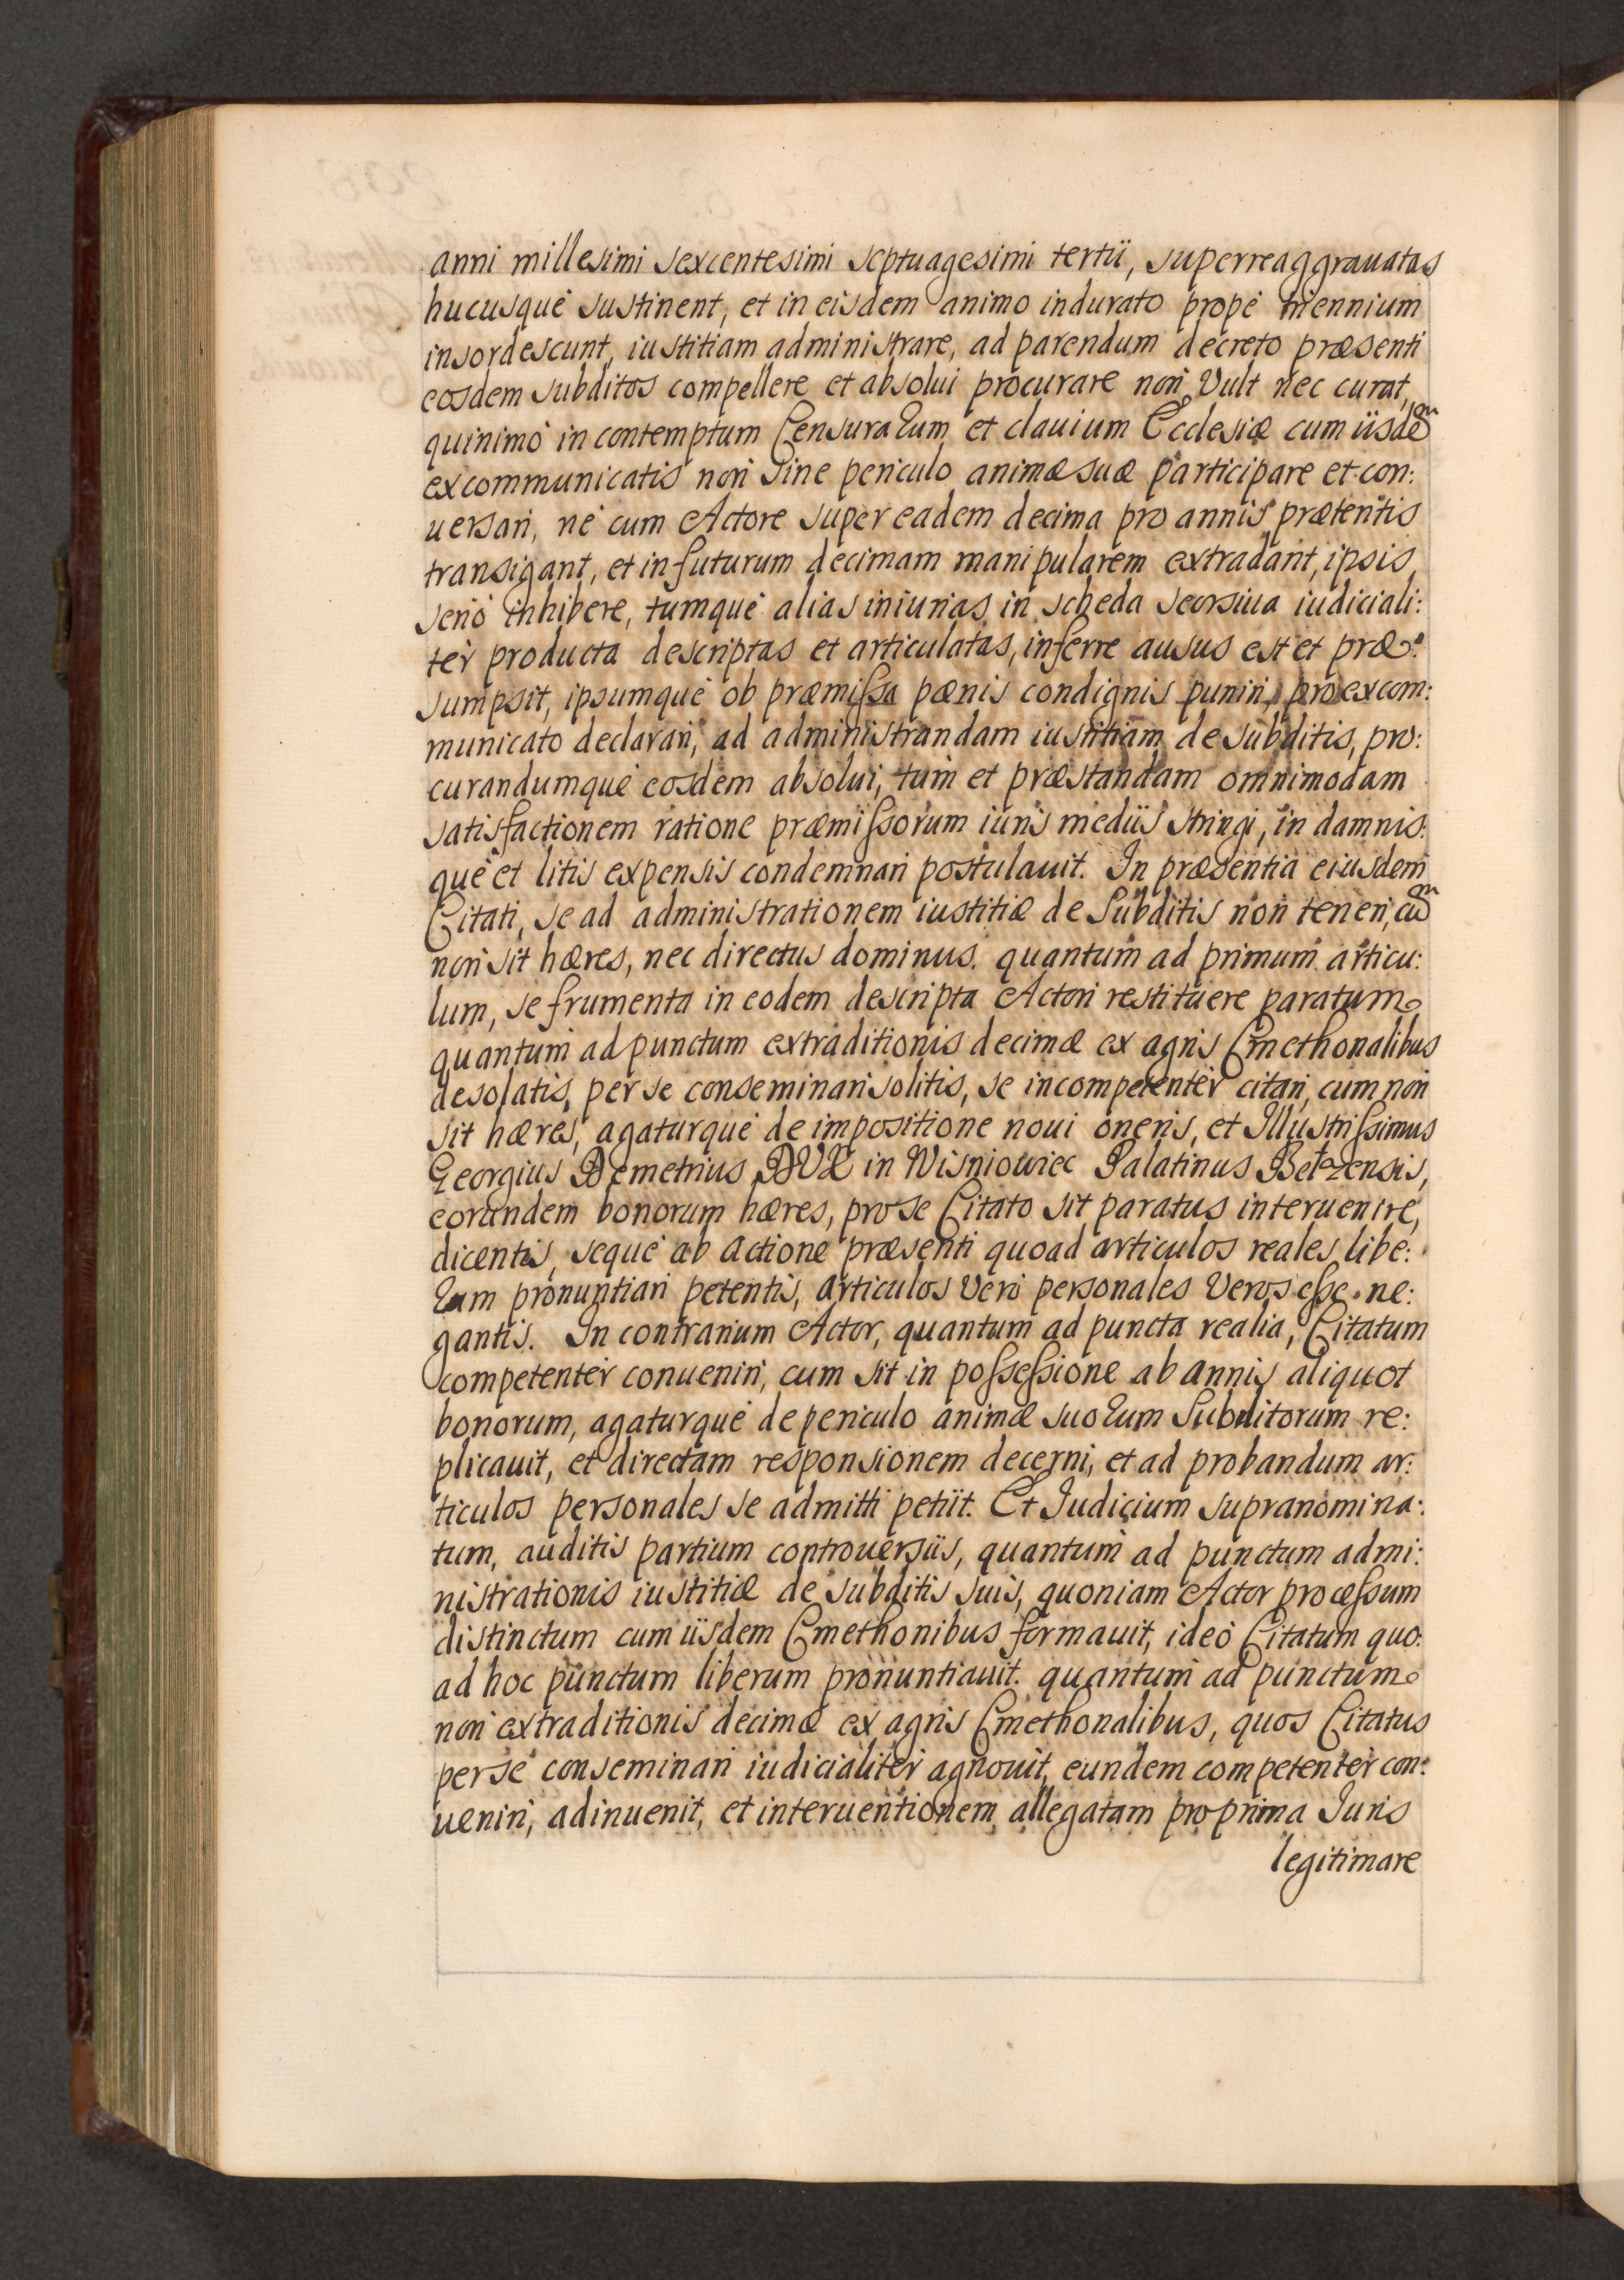 anni millesimi sexcentesimi septuagesimi tertii, superreaggrauatas
hucusque sustinent, et in eisdem animo indurato propè triennium
insordescunt, iustitiam administrare, ad parendum decreto præsenti
eosdem subditos compellere et absolui procurare non Vult nec curat,
quinimò in contemptum Censurarum et clauium Ecclesiæ cum iisdem
excommunicatis non sine periculo animæ suæ participare et con:
uersari, nè cum Actore super eadem decima pro annis prætentis
transigant, et in futurum decimam manipularem extradant, ipsis
seriò inhibere, tumque alias iniurias in scheda seorsiua iudiciali:
ter producta descriptas et articulatas, inferre ausus est et præ:
sumpsit, ipsumque ob præmissa pænis condignis puniri, pro excom:
municato declarari, ad administrandam iustitiam de subditis, pro:
curandumque eosdem absolui, tum et præstandam omnimodam
satisfactionem ratione præmissorum iuris mediis stringi, in damnis:
que et litis expensis condemnari postulauit. In præsentia eiusdem
Citati, se ad administrationem iustitiæ de Subditis non teneri, cum
non sit hæres, nec directus dominus. quantum ad primum articu:
lum, se frumenta in eodem descripta Actori restituere paratum
quantum ad punctum extraditionis decimæ ex agris Cmethonalibus
desolatis, per se conseminari solitis, se incompetenter citari, cum non
sit hæres, agaturque de impositione noui oneris, et Illustrissimus
Georgius Demetrius DUX in Wisniowiec Palatinus Belzensis,
eorundem bonorum hæres, pro se Citato sit paratus interuenire,
dicentis, seque ab actione præsenti quoad articulos reales libe:
rum pronuntiari petentis, articulos Verò personales Veros esse ne:
gantis. In contrarium Actor, quantum ad puncta realia, Citatum
competenter conueniri, cum sit in possessione ab annis aliquot
bonorum, agaturque de periculo animæ suorum Subditorum re:
plicauit, et directam responsionem decerni, et ad probandum ar:
ticulos personales se admitti petiit. Et Iudicium supranomina:
tum, auditis partium controuersiis, quantum ad punctum admi:
nistrationis iustitiæ de subditis suis, quoniam Actor processum
distinctum cum iisdem Cmethonibus formauit, ideò Citatum quo:
ad hoc punctum liberum pronuntiauit. quantum ad punctum
non extraditionis decimæ ex agris Cmethonalibus, quos Citatus
per se conseminari iudicialiter agnouit, eundem competenter con:
ueniri, adinuenit, et interuentionem allegatam pro prima Iuris
legitimare